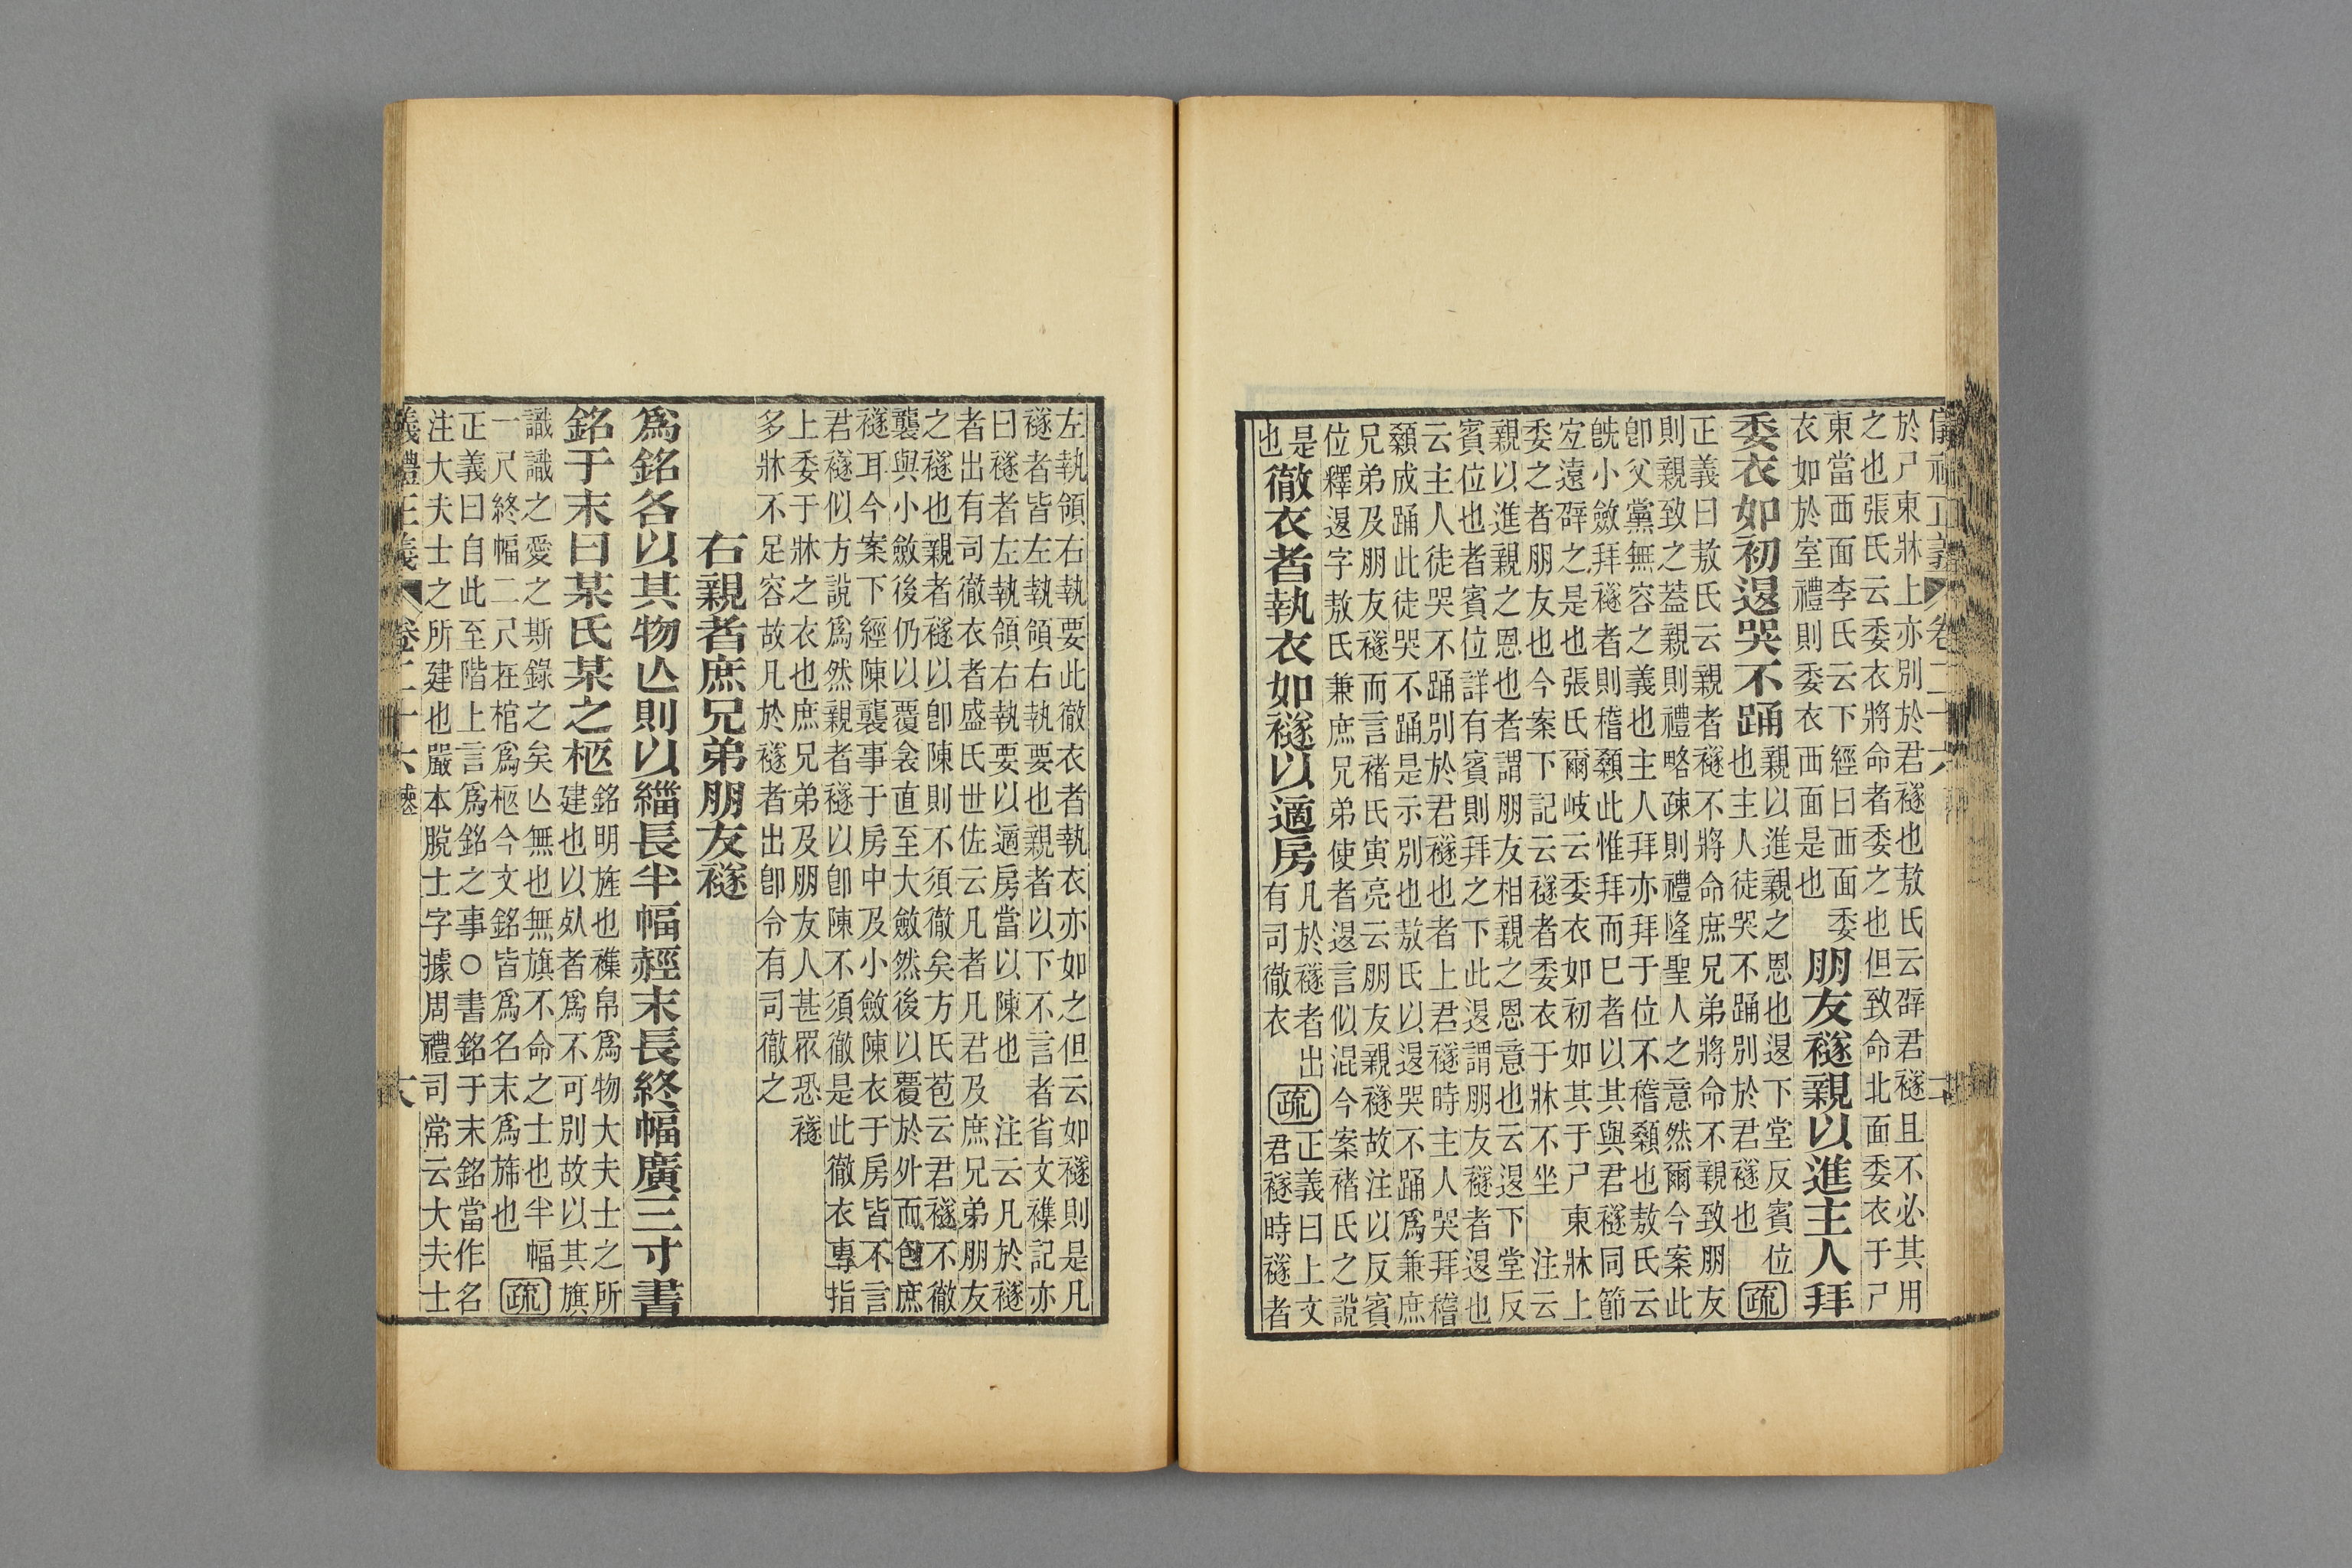 於尸東牀上亦別於君襚也敖氏云辟君襚且不必其用
之也張氏云委衣將命者委之也但致命北面委衣于尸
東當西面李氏云下經曰西面委
衣如於室禮則委衣西面是也
朋友襚親以進主人拜
委衣如初退哭不踊
親以進親之恩也退下堂反賓位
也主人徒哭不踊別於君襚也
疏
正義曰敖氏云親者襚不將命庶兄弟將命不親致朋友
則親致之蓋親則禮略疎則禮隆聖人之意然爾今案此
卽父黨無容之義也主人拜亦拜于位不稽顙也敖氏云
旣小斂拜襚者則稽顙此惟拜而已者以其與君襚同節
宐遠辟之是也張氏爾岐云委衣如初如其于尸東牀上
委之者朋友也今案下記云襚者委衣于牀不坐 注云
親以進親之恩也者謂朋友相親之恩意也云退下堂反
賓位也者賓位詳有賓則拜之下此退謂朋友襚者退也
云主人徒哭不踊別於君襚也者上君襚時主人哭拜稽
顙成踊此徒哭不踊是示別也敖氏以退哭不踊爲兼庶
兄弟及朋友襚而言褚氏寅亮云朋友親襚故注以反賓
位釋退字敖氏兼庶兄弟使者退言似混今案褚氏之說
是
也
徹衣者執衣如襚以適房
凡於襚者出
有司徹衣
疏
正義曰上文
君襚時襚者
左執領右執要此徹衣者執衣亦如之但云如襚則是凡
襚者皆左執領右執要也親者以下不言者省文襍記亦
曰襚者左執領右執要以適房當以陳也 注云凡於襚
者出有司徹衣者盛氏世佐云凡者凡君及庶兄弟朋友
之襚也親者襚以卽陳則不須徹矣方氏苞云君襚不徹
襲與小斂後仍以覆衾直至大斂然後以覆於外而包庶
襚耳今案下經陳襲事于房中及小斂陳衣于房皆不言
君襚似方說爲然親者襚以卽陳不須徹是此徹衣專指
上委于牀之衣也庶兄弟及朋友人甚眾恐襚
多牀不足容故凡於襚者出卽令有司徹之
右親者庶兄弟朋友襚
爲銘各以其物亾則以緇長半幅䞓末長終幅廣三寸書
銘于末曰某氏某之柩
銘明旌也襍帛爲物大夫士之所
建也以死者爲不可別故以其旗
識識之愛之斯錄之矣亾無也無旗不命之士也半幅
一尺終幅二尺在棺爲柩今文銘皆爲名末爲旆也
疏
正義曰自此至階上言爲銘之事○書銘于末銘當作名
注大夫士之所建也嚴本脫士字據周禮司常云大夫士